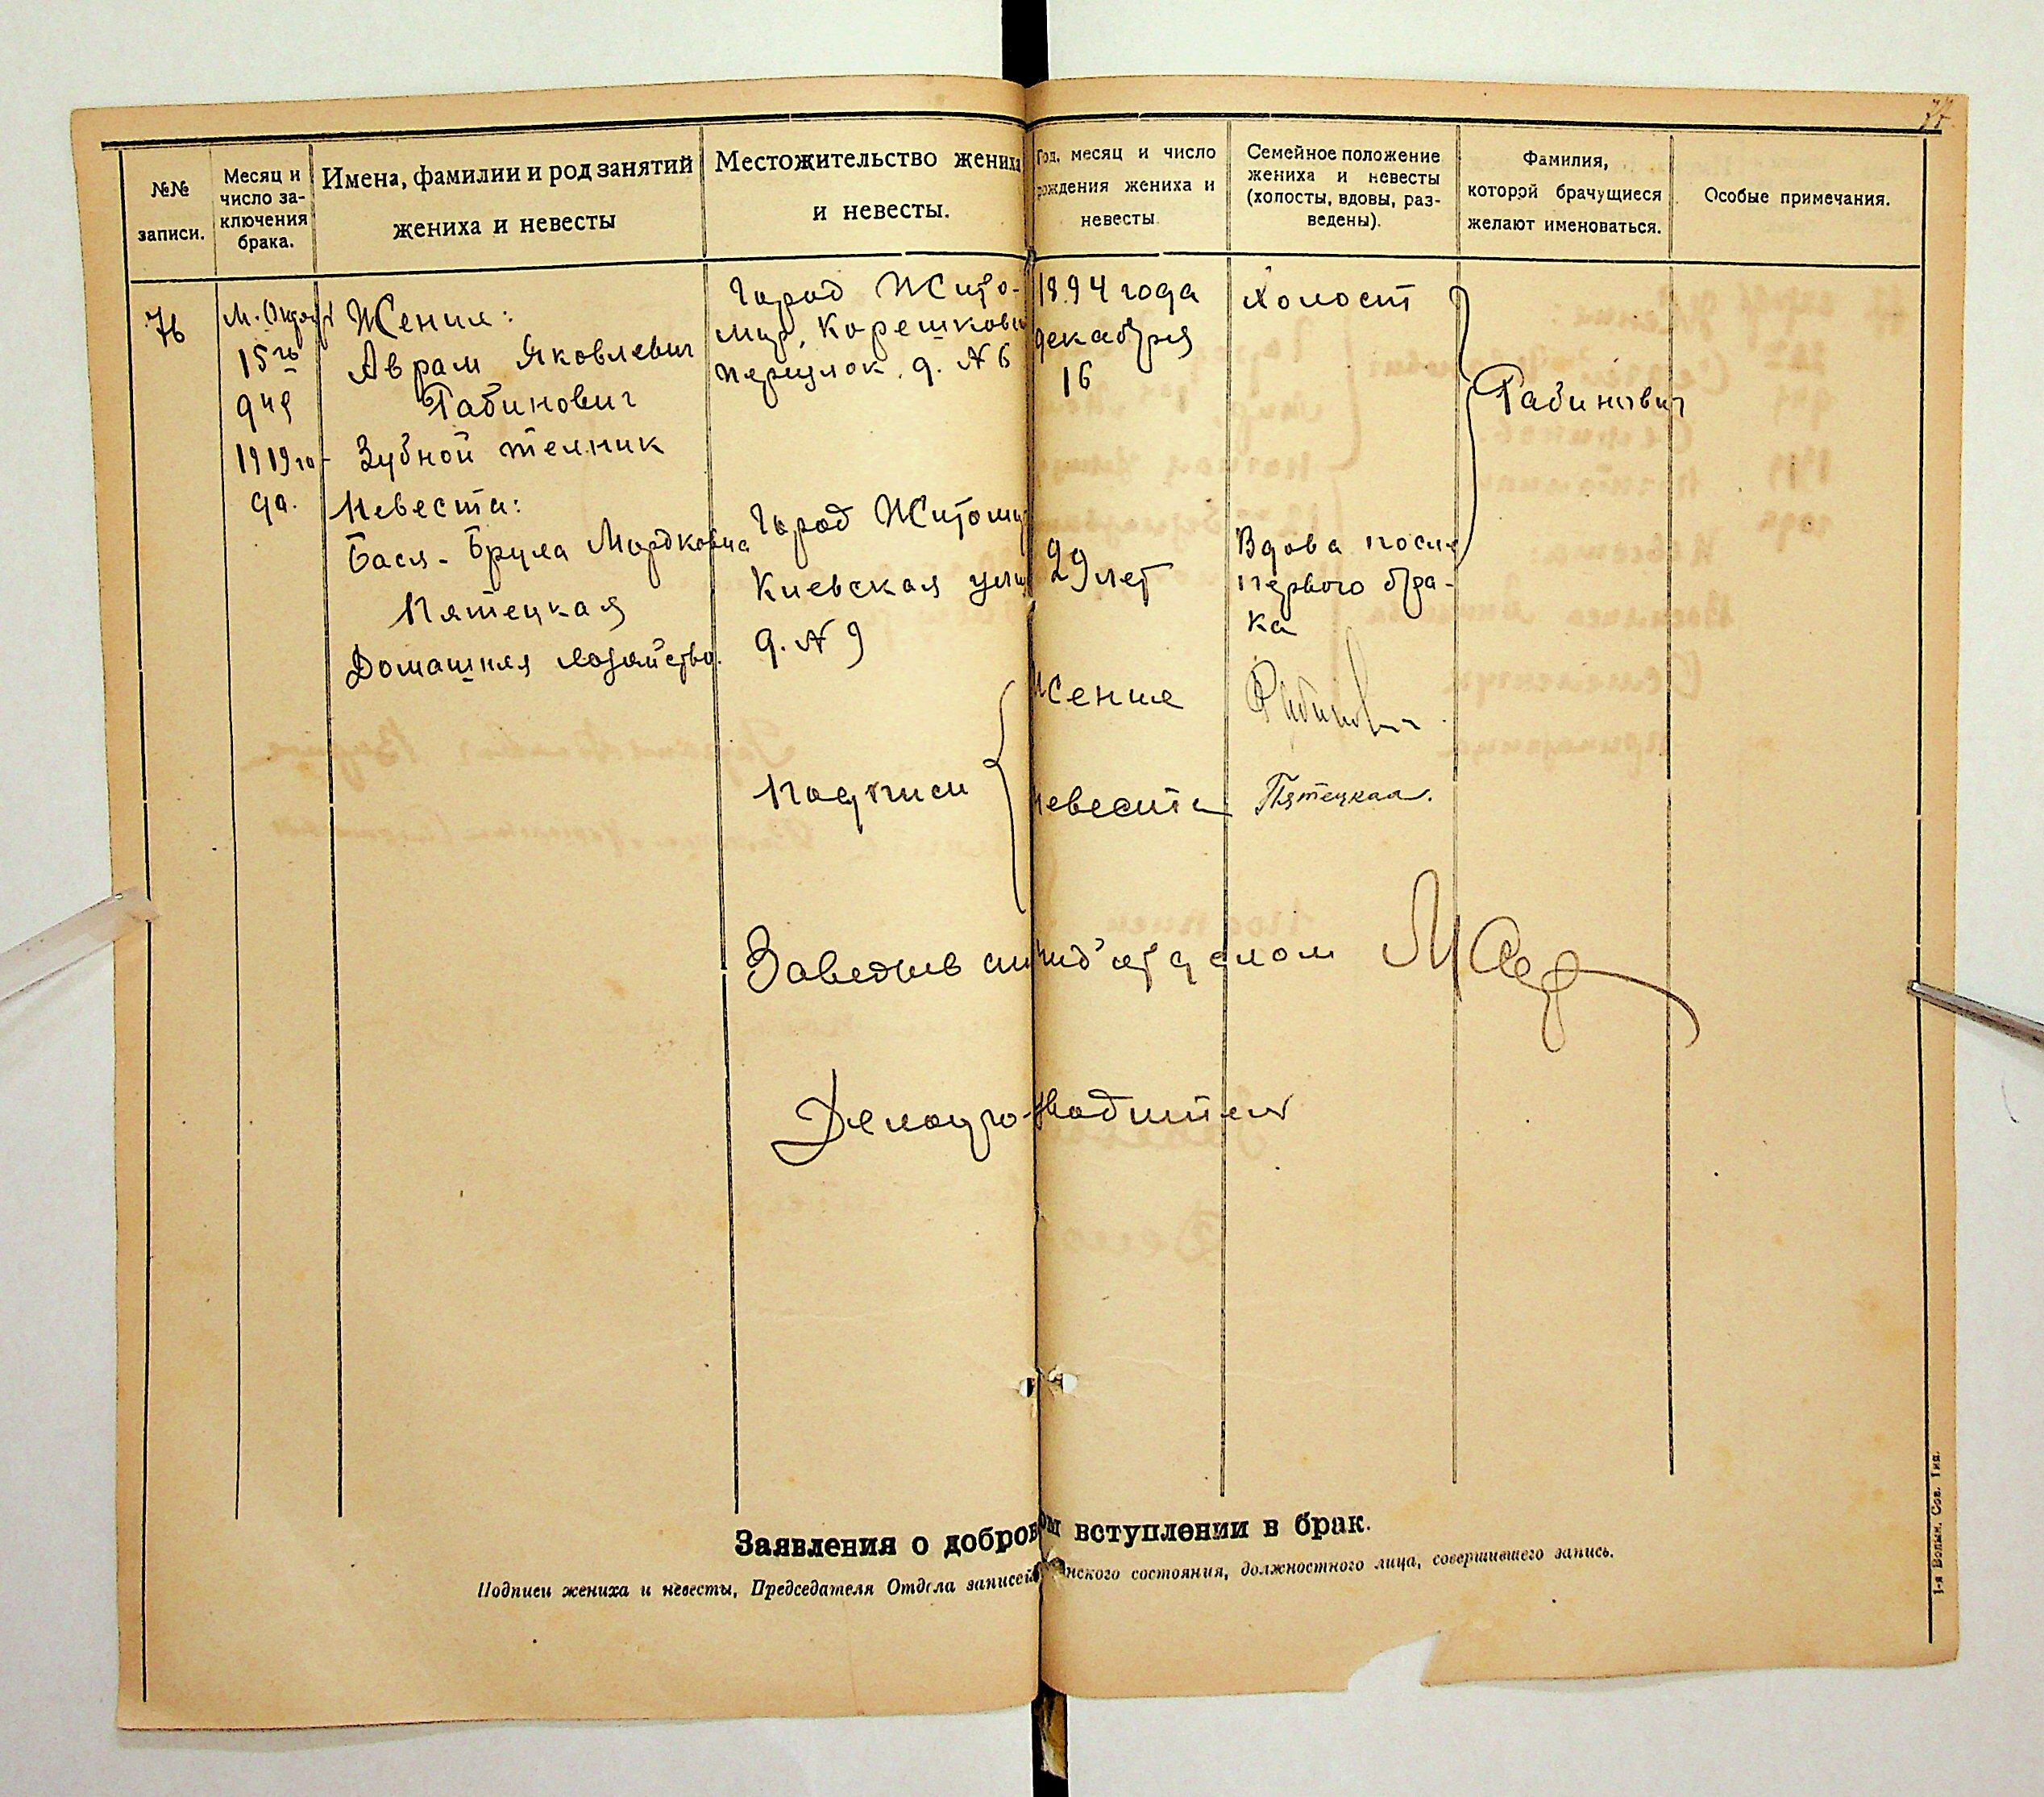 77
№№
записи.
Месяц и
число за-
ключения
брака.
Имена, фамилии и род занятий
жениха и невесты
Местожительство жениха
и невесты.
Год, месяц и число
рождения жениха и
невесты
Семейное положение
жениха и невесты
(холосты, вдовы, раз-
ведены).
Фамилия,
которой брачущиеся
желают именоваться.
Особые примечания.
76
15го
дня
1919 го-
да.
Жених:
Аврам Яковлевич
Рабинович
Зубной техник
Невеста:
Бася-Бруха Мордковна
Пятецкая
Домашнея хозяйство.
Город Жито-
мир,
переулок д. № 6
Город Житомир
Киевская улиц
д. № 9
1894 года
декабря
16
29 лет
Холост
Вдова после
первого бра-
ка
Рабинович
Подписи
жених Рабинович
невеста Пятецкая.
Заведыв под'отделом
Делопроизводитель
Заявления о добров ом вступлении в брак.
Подписи жениха и невесты, Председателя Отдела записей нского состояния, должностного лица, совершившего запись.
1-я Волын. Сов. Тип.